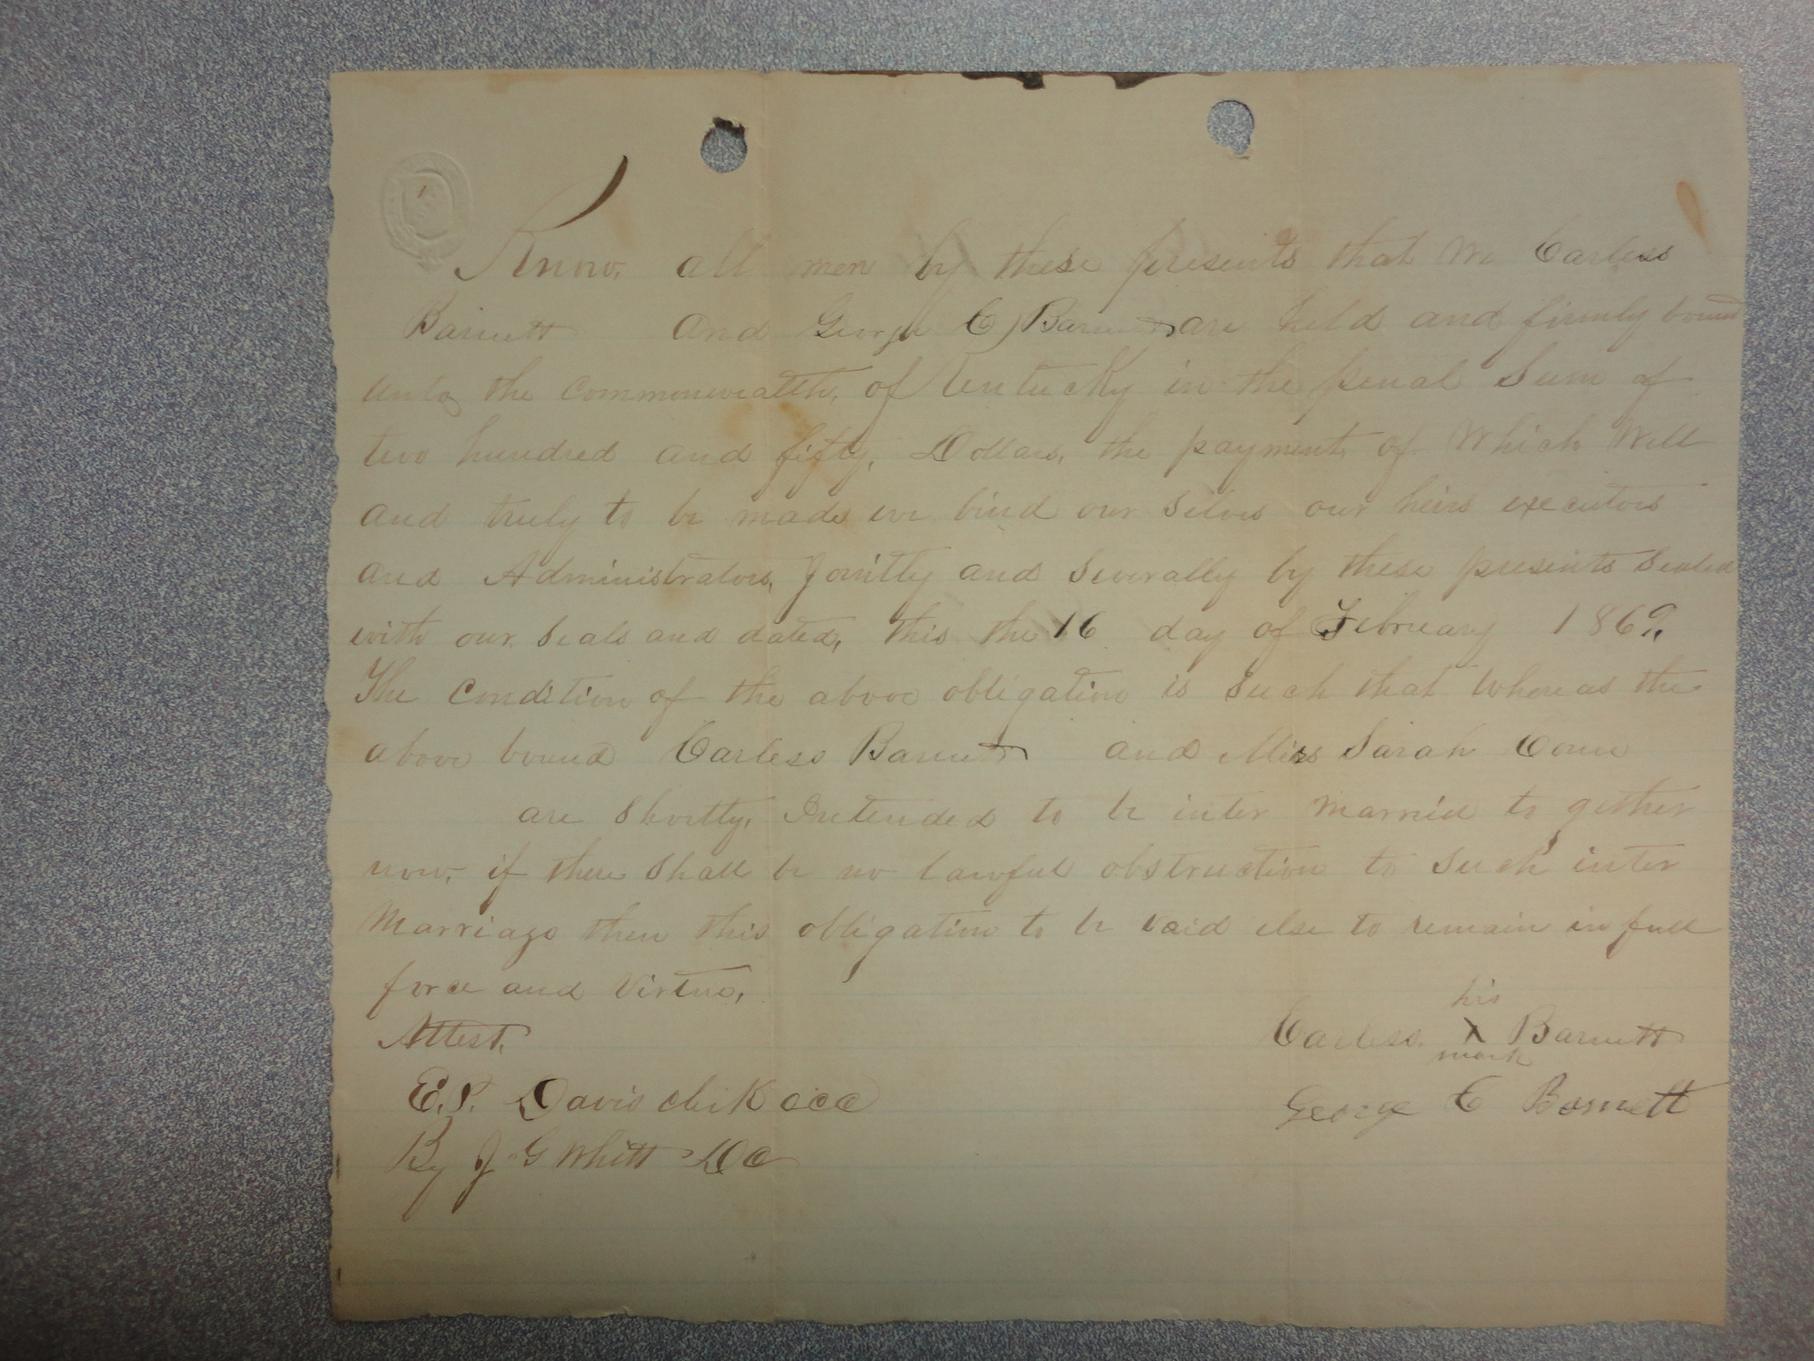 Know all men by these presents that We Carless
Barnett and George C Barnett are held and firmly bound
unto the Commonwealth, of Kentucky in the penal Sum of
two hundred and fifty, Dollars, the payment, of Which Well
and truly to be made we bind our Selves our heirs executors
and Administrators, Jointly and Severally by these presents Sealed
with our Seals and dated, this the 16 day of February 1869,
The Condition of the above obligation is Such that Whereas the
above bound Carless Barnett and Miss Sarah Conn
are Shortly, Intended to be inter married to gether
now, if there Shall be no lawful obstruction to Such inter
Marriage then this obligation to be void else to remain in full
force and Virtue,
his
Attest, Carless X Barnett
mark
E. P. Davis clerk CCC George C Barnett
By J G Whitt DC